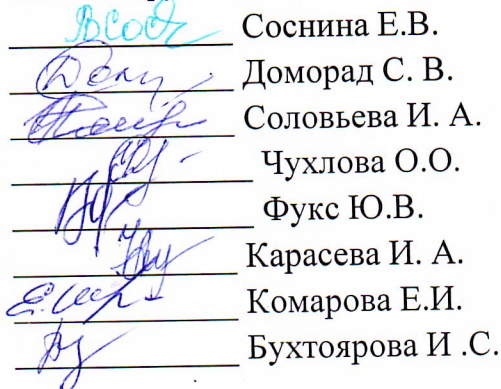 Соснина Е.В.
Доморад С. В.
Соловьева И. А.
Чухлова О.О.
Фукс Ю.В.
Карасева И. А.
Комарова Е.И.
Бухтоярова И .С.